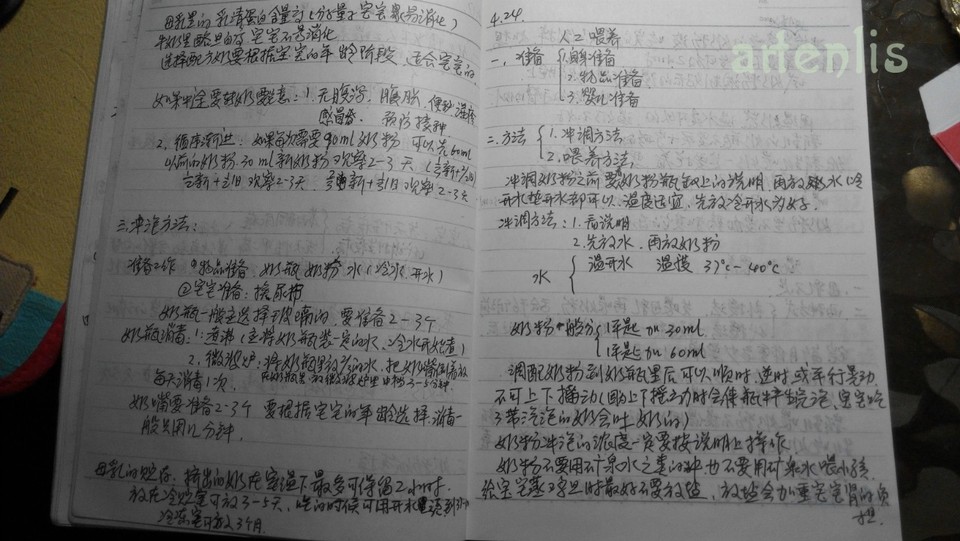 母乳里的乳清蛋白含量高(分子量小宝宝容易消化)
牛奶里酪旦白高 宝宝不易消化
选择配方奶要根据宝宝的年龄阶段,适合宝宝的,
如果一定要转奶要注意:1.无腹泻,腹胀,便秘,湿疹
感冒发. 预防接种
2.循序渐进:如果每次需要90ml奶粉 可以先60ml
以前的奶粉30ml新奶粉 观察2-3天
观察2-3天. 新+旧 观察2-3天
三.冲泡方法:
准备工作 ①物品准备 奶瓶 奶粉 水(冷水.开水)
②宝宝准备:换尿布
奶瓶一般应选择 的,要准备2-3个
奶瓶消毒:1.煮沸(应将奶瓶装一定的水,冷水开始煮)
2.微波炉:将奶瓶里放 的水,把奶嘴倒放
每天消毒1次, 3-5分钟
奶嘴要准备2-3个 要根据宝宝的年龄选择.消毒一
般只用几分钟.
母乳的贮存. 挤出的奶在室温下最多可保留2小时.
放在冷贮室可放3-5天,吃的时候可用开水
冷冻室可放3个月.
4.24.
人工喂养
一、准备 1.自身准备
2.物品准备
3.婴儿准备
二.方法 1.冲调方法
2.喂养方法,
冲调奶粉之前要看奶粉瓶 上的说明,再放水(冷
开水热开水都可以,温度适宜,先放冷开水为好.
冲调方法:1.看说明
2.先放水.再放奶粉
水 温开水 温度 37℃-40℃
奶粉一般分 1平匙加30ml
1平匙加60ml
调配奶粉到奶瓶里后可以顺时.逆时.或平行晃动,
不可上下摇动(因上下摇动时会使瓶中产生气泡,宝宝吃
了带气泡的奶会吐奶的)
奶粉冲泡的浓度一定要按说明上操作
奶粉不要用矿泉水之类的冲也不要用矿泉水喂小孩
给宝宝 时最好不要放盐,放盐会加重宝宝肾的负
担.
artenlis